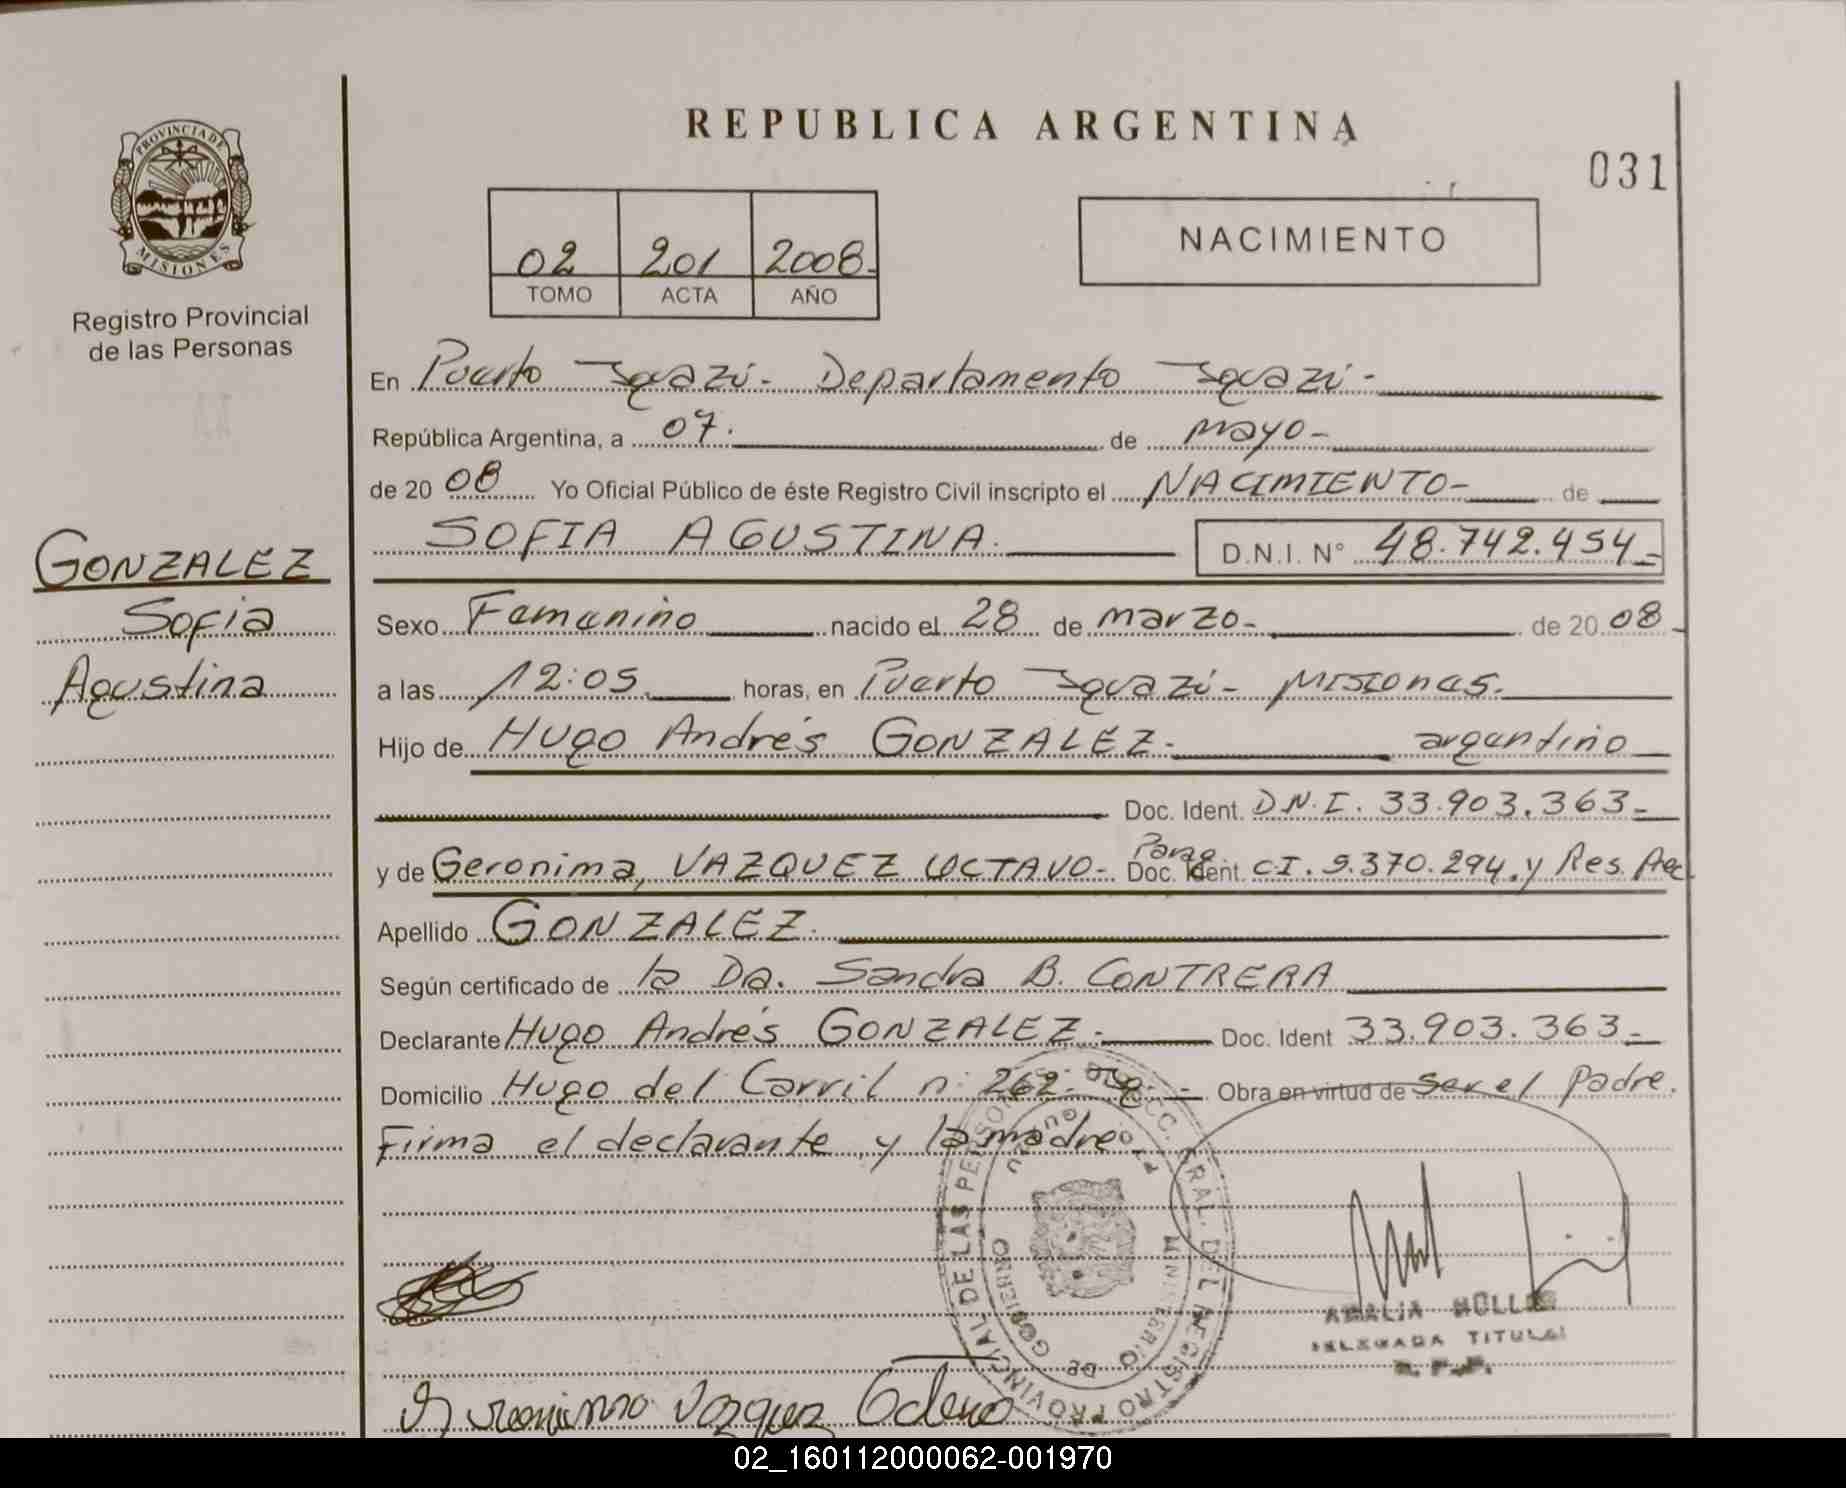 REPUBLICA ARGENTINA
031
PROVINCIA DE
MISIONES
Registro Provincial
de las Personas
02 201 2008-
TOMO ACTA AÑO
NACIMIENTO
En Puerto Iguazú- Departamento Iguazú-
República Argentina, a 07. de mayo-
de 20 08 Yo Oficial Público de éste Registro Civil inscripto el NACIMIENTO- de
SOFIA AGUSTINA. D.N.I. N° 48.742.454-
GONZALEZ
Sofia
Agustina
Sexo Femenino nacido el 28 de marzo- de 20 08-
a las 12:05 horas, en Puerto Iguazú- Misiones.
Hijo de Hugo Andrés GONZALEZ- argentino
Doc. Ident. D.N.I. 33.903.363-
y de Geronima, VAZQUEZ OCTAVO- Parag. Doc. Ident. CI. 5.370.294. y Res. Prec.
Apellido GONZALEZ.
Según certificado de la Dra. Sandra B. CONTRERA
Declarante Hugo Andrés GONZALEZ- Doc. Ident 33.903.363-
Domicilio Hugo del Carril n: 262- Ig.- Obra en virtud de ser el padre.
Firma el declarante y la madre
DE LAS PERSONAS
REGISTRO PROVINCIAL
MINISTERIO DE GOBIERNO
AMALIA
DELEGADA TITULAR
R. P. P.
Geronima Vazquez
02_160112000062-001970